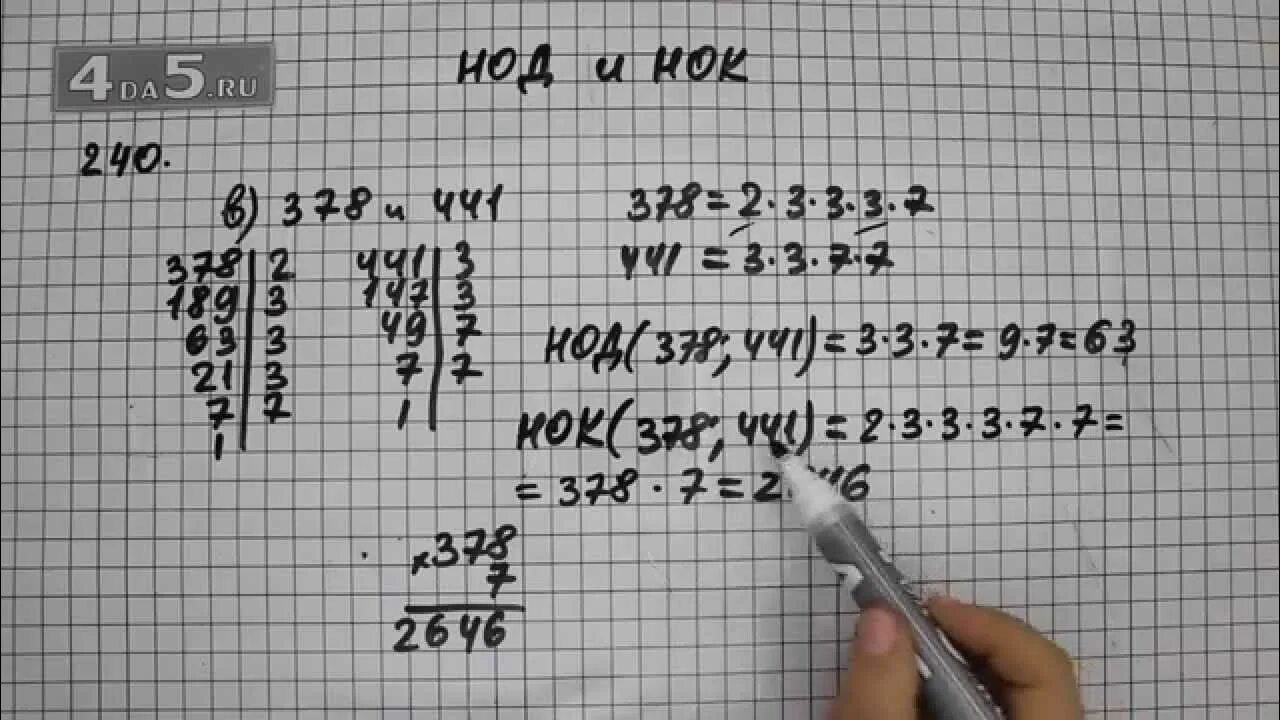 4DA5.RU
НОД и НОК
240.
в) 378 и 441
378 | 2
189 | 3
63 | 3
21 | 3
7 | 7
1
441 | 3
147 | 3
49 | 7
7 | 7
1
378 = 2·3·3·3·7
441 = 3·3·7·7
НОД(378; 441) = 3·3·7 = 9·7 = 63
НОК(378; 441) = 2·3·3·3·7·7 =
= 378 · 7 =
×378
7
2646